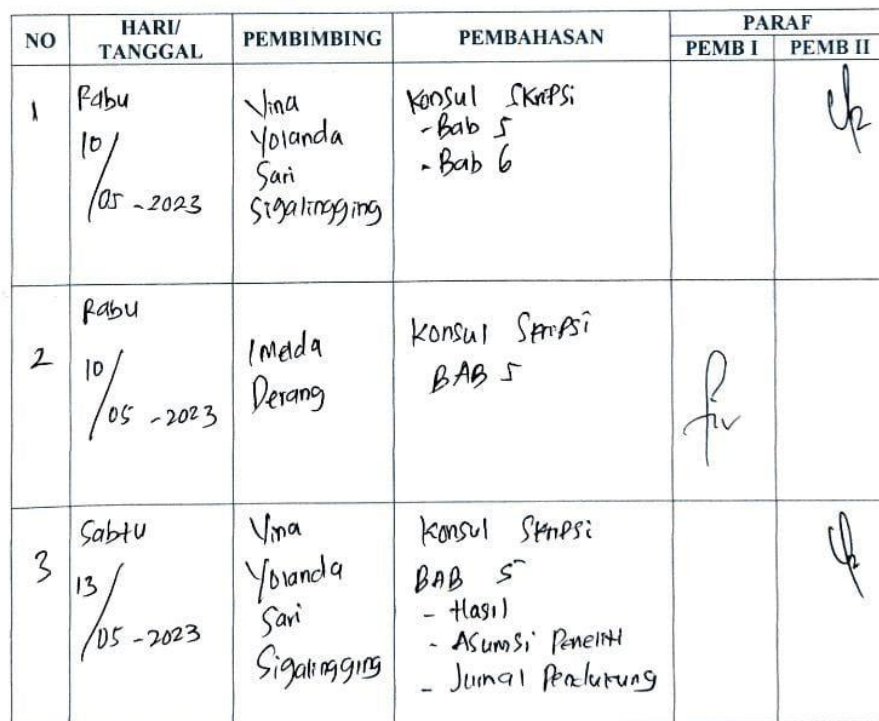 NO HARI/ TANGGAL PEMBIMBING PEMBAHASAN PARAF
PEMB I PEMB II
1 Rabu 10/05-2023
Vina
Yolanda
Sari
Sigalingging
Konsul Skripsi
- Bab 5
- Bab 6
2 Rabu 10/05-2023
Imelda
Derang
Konsul Skripsi
BAB 5
3 Sabtu 13/05-2023
Vina
Yolanda
Sari
Sigalingging
Konsul Skripsi
BAB 5
- Hasil
- Asumsi Peneliti
- Jurnal Pendukung